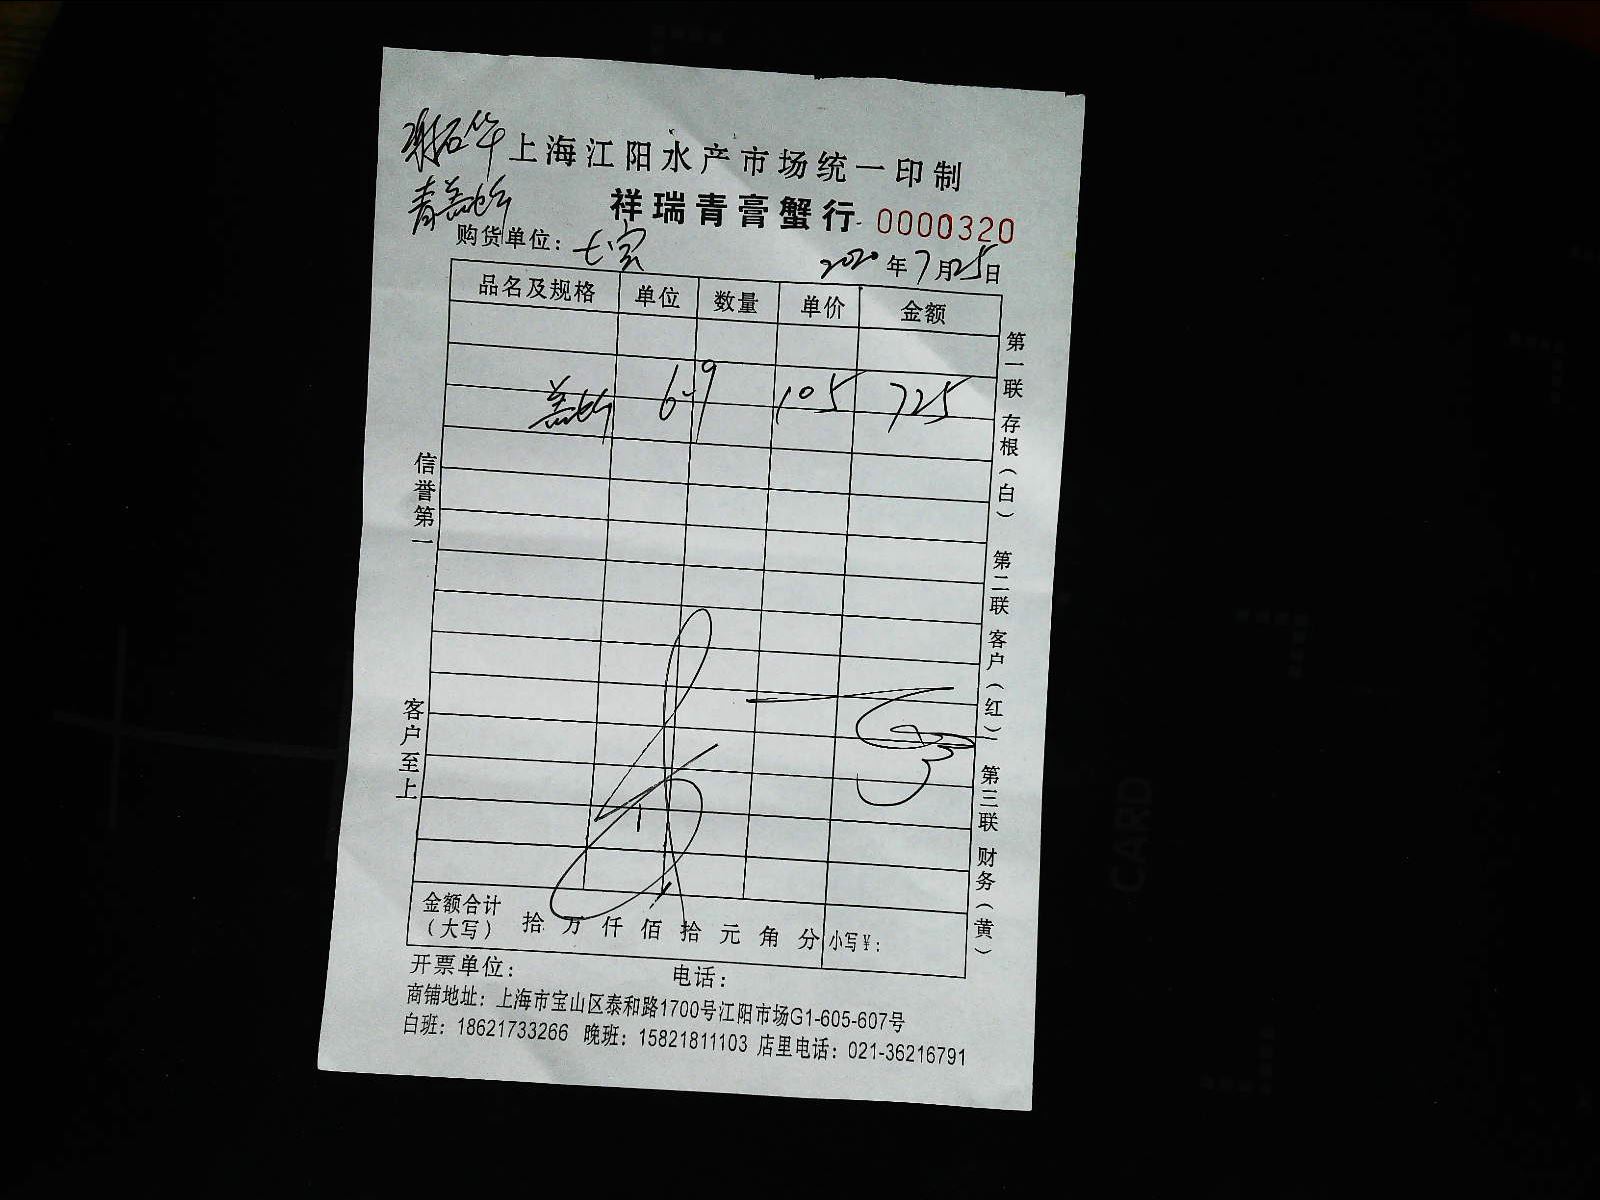 上海江阳水产市场统一印制
祥瑞青膏蟹行 0000320
购货单位：七宝
2020年7月25日
品名及规格 单位 数量 单价 金额
6-9 105 725
信誉第一
客户至上
第一联 存根（白） 第二联 客户（红） 第三联 财务（黄）
金额合计（大写） 拾 万 仟 佰 拾 元 角 分 小写￥：
开票单位： 电话：
商铺地址：上海市宝山区泰和路1700号江阳市场G1-605-607号
白班：18621733266 晚班：15821811103 店里电话：021-36216791
CARD